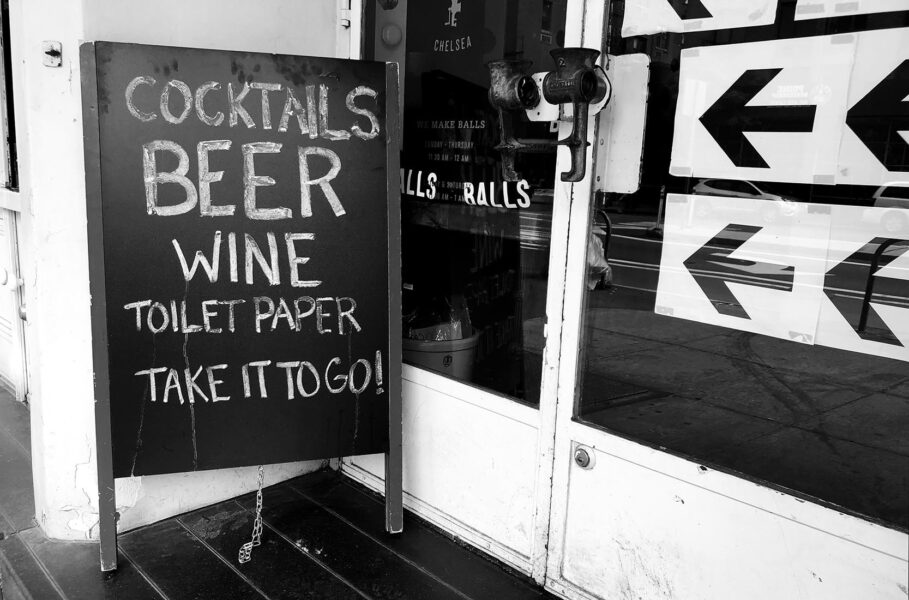 COCKTAILS
BEER
WINE
TOILET PAPER
TAKE IT TO GO!
CHELSEA
WE MAKE BALLS
SUNDAY - THURSDAY
11:30 AM - 12 AM
ALLS BALLS